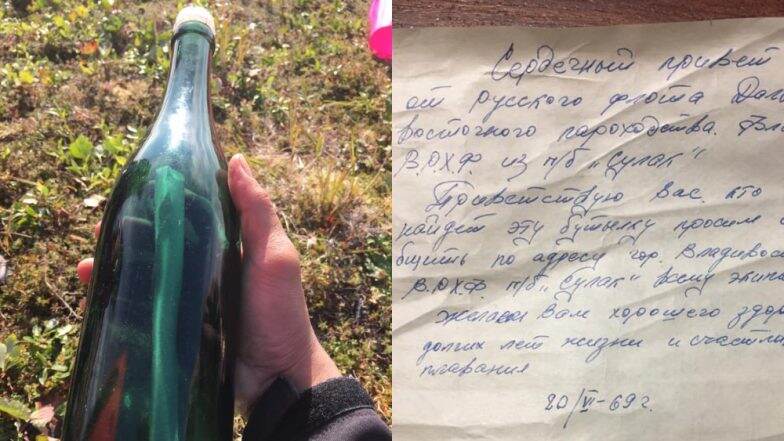 Сердечный привет
от русского флота Дал
восточного пароходства. Фл
В.О.Х.Ф. из п/б „Сулак"
Приветствую Вас. кто
найдет эту бутылку просим
бщить по адресу гор. Владивос
В.О.Х.Ф. п/б „Сулак" всему экипа
Желаем Вам хорошего здор
долгих лет жизни и счастли
плавания
20/VI-69 г.